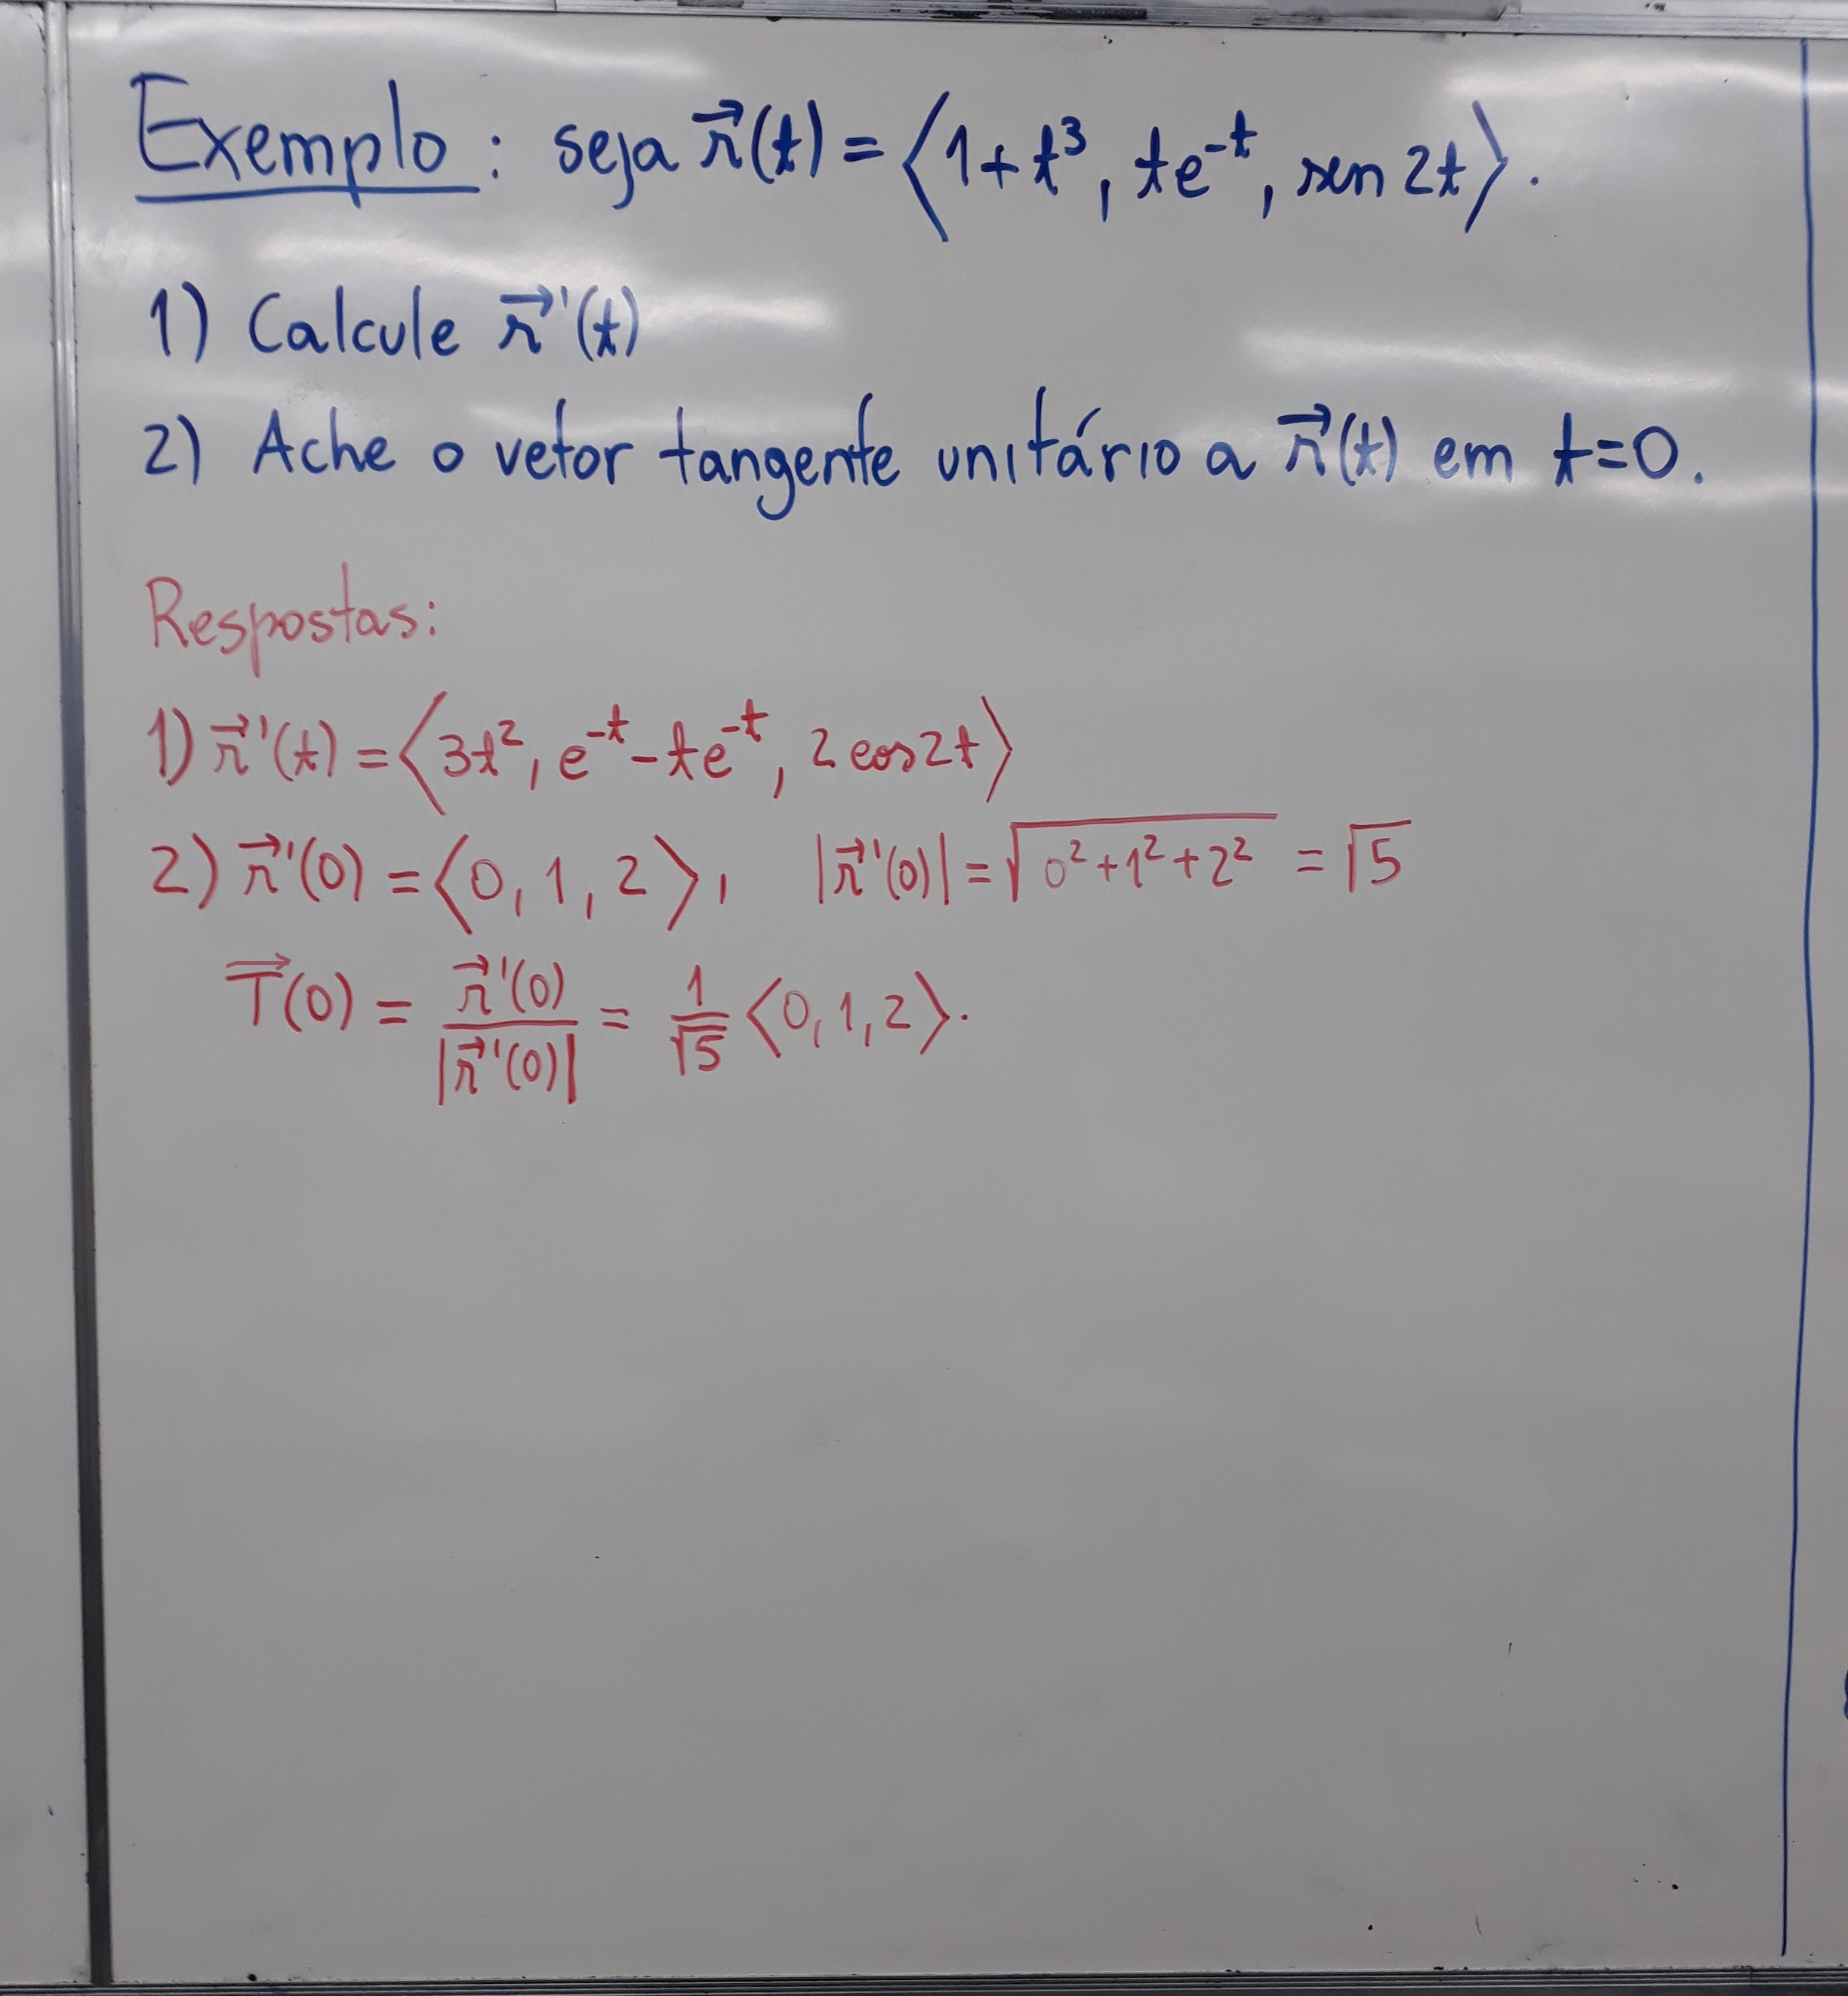 Exemplo: seja r⃗(t) = ⟨1+t³, te⁻ᵗ, sen 2t⟩.
1) Calcule r⃗'(t)
2) Ache o vetor tangente unitário a r⃗(t) em t=0.
Respostas:
1) r⃗'(t) = ⟨3t², e⁻ᵗ - te⁻ᵗ, 2 cos 2t⟩
2) r⃗'(0) = ⟨0, 1, 2⟩, |r⃗'(0)| = √(0²+1²+2²) = √5
T⃗(0) = r⃗'(0)/|r⃗'(0)| = 1/√5 ⟨0, 1, 2⟩.